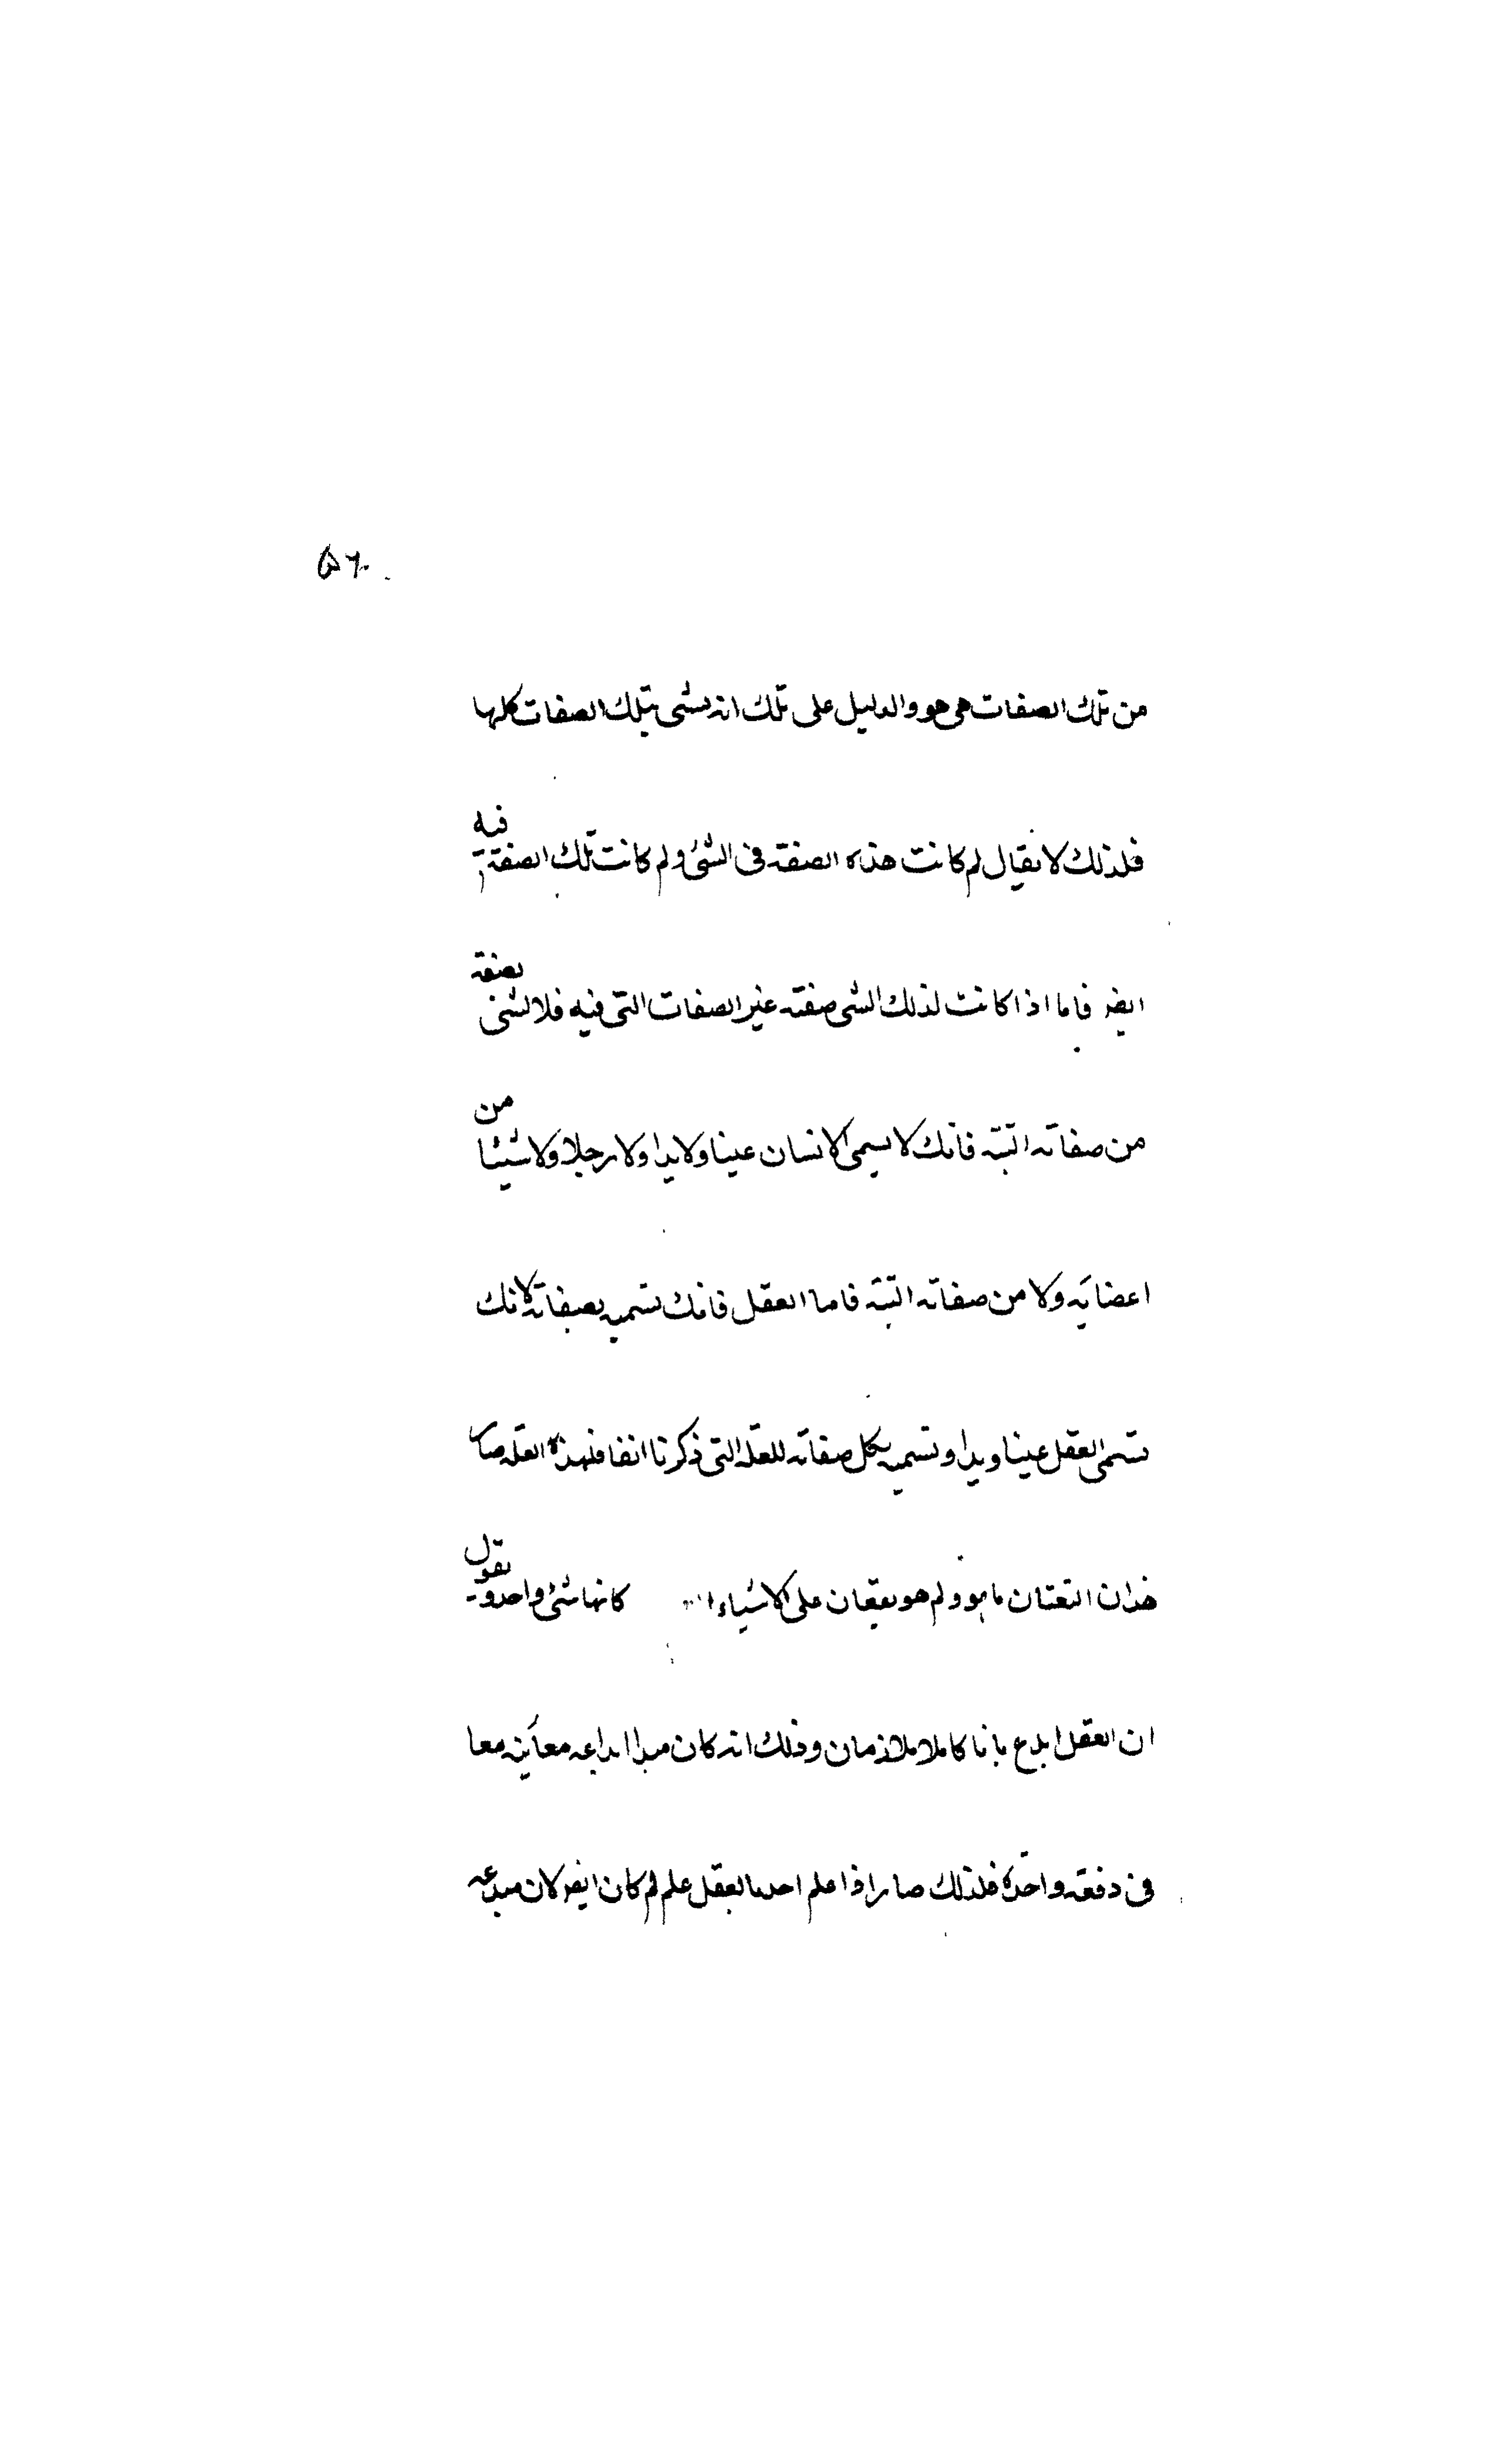 ۵۶
من تلك الصفات هى هو والدليل على تلك انه يسمى بتلك الصفات كلها
فلذلك لا يقال لم كانت هذه الصفة فى الشئ ولم كانت تلك الصفة فيه
ايضر فاما اذا كانت لذلك الشى صفة غير الصفات التى فيه فلا يسمى بصفة
من صفاته البتة فانك لا يسمى الانسان عينا ولا يدا ولا رجلا ولا شيئا من
اعضايه ولا من صفاته البتة فاما العقل فانك تسميه بصفاته لانك
تسمى العقل عينا ويدا وتسميه بكل صفاته للعلة التى ذكرنا انفا فلهذه العلة صار
هذان النعتان ما هو ولم هو يقعان على الاشياء كانها شئ واحد و نقول
ان العقل ابدع تاما كاملا بلا زمان وذلك انه كان مبدا ابداعه معا
فى دفعة واحدة فلذلك صار اذا علم احد ما العقل علم لم كان ايضر لان مبدعه